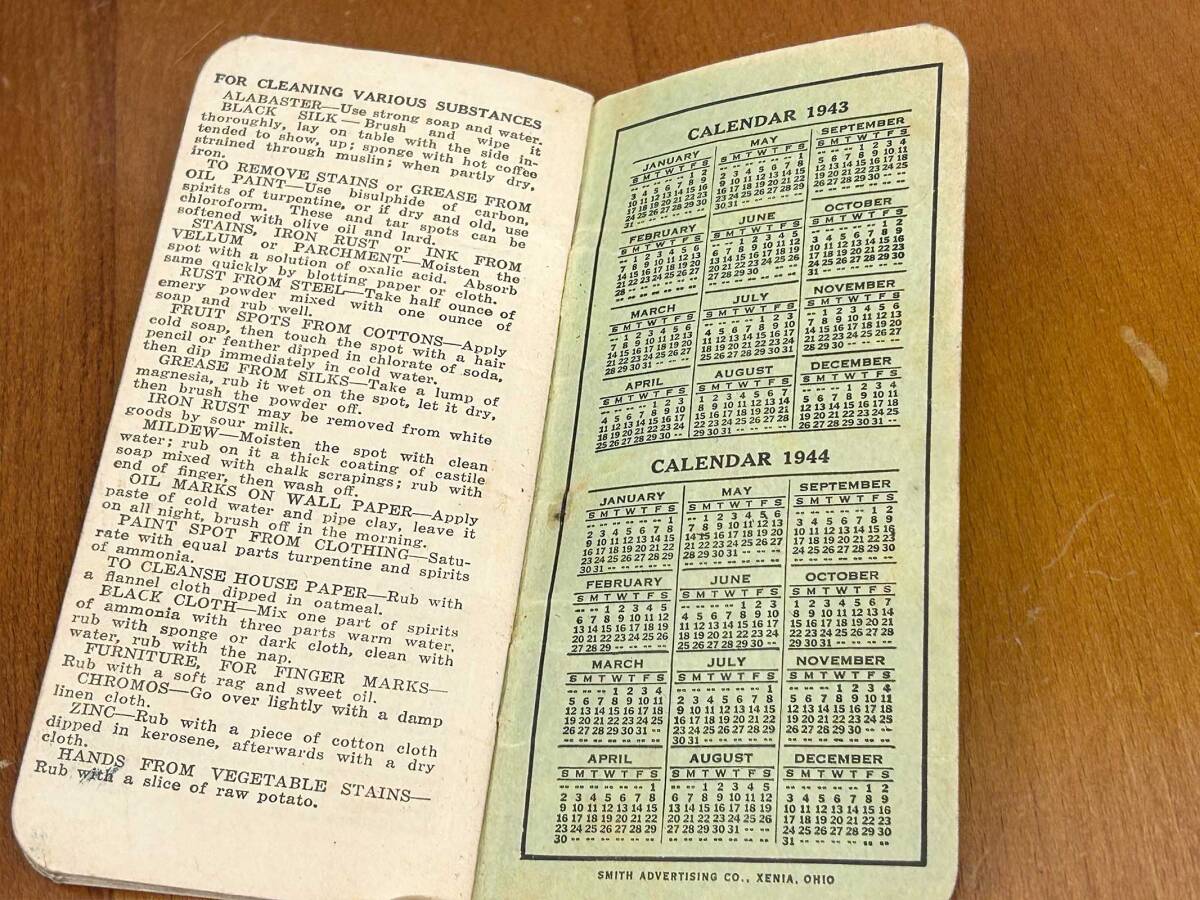 FOR CLEANING VARIOUS SUBSTANCES
ALABASTER—Use strong soap and water.
BLACK SILK — Brush and wipe it
thoroughly, lay on table with the side in-
tended to show, up; sponge with hot coffee
strained through muslin; when partly dry,
iron.
TO REMOVE STAINS or GREASE FROM
OIL PAINT—Use bisulphide of carbon,
spirits of turpentine, or if dry and old, use
chloroform. These and tar spots can be
softened with olive oil and lard.
STAINS, IRON RUST or INK FROM
VELLUM or PARCHMENT—Moisten the
spot with a solution of oxalic acid. Absorb
same quickly by blotting paper or cloth.
RUST FROM STEEL—Take half ounce of
emery powder mixed with one ounce of
soap and rub well.
FRUIT SPOTS FROM COTTONS—Apply
cold soap, then touch the spot with a hair
pencil or feather dipped in chlorate of soda,
then dip immediately in cold water.
GREASE FROM SILKS—Take a lump of
magnesia, rub it wet on the spot, let it dry,
then brush the powder off.
IRON RUST may be removed from white
goods by sour milk.
MILDEW—Moisten the spot with clean
water; rub on it a thick coating of castile
soap mixed with chalk scrapings; rub with
end of finger, then wash off.
OIL MARKS ON WALL PAPER—Apply
paste of cold water and pipe clay, leave it
on all night, brush off in the morning.
PAINT SPOT FROM CLOTHING—Satu-
rate with equal parts turpentine and spirits
of ammonia.
TO CLEANSE HOUSE PAPER—Rub with
a flannel cloth dipped in oatmeal.
BLACK CLOTH—Mix one part of spirits
of ammonia with three parts warm water,
rub with sponge or dark cloth, clean with
water, rub with the nap.
FURNITURE, FOR FINGER MARKS—
Rub with a soft rag and sweet oil.
CHROMOS—Go over lightly with a damp
linen cloth.
ZINC—Rub with a piece of cotton cloth
dipped in kerosene, afterwards with a dry
cloth.
HANDS FROM VEGETABLE STAINS—
Rub with a slice of raw potato.
CALENDAR 1943
JANUARY
S M T W T F S
-- -- -- -- -- 1 2
3 4 5 6 7 8 9
10 11 12 13 14 15 16
17 18 19 20 21 22 23
24 25 26 27 28 29 30
31 -- -- -- -- -- --
FEBRUARY
S M T W T F S
-- 1 2 3 4 5 6
7 8 9 10 11 12 13
14 15 16 17 18 19 20
21 22 23 24 25 26 27
28 -- -- -- -- -- --
-- -- -- -- -- -- --
MARCH
S M T W T F S
-- 1 2 3 4 5 6
7 8 9 10 11 12 13
14 15 16 17 18 19 20
21 22 23 24 25 26 27
28 29 30 31 -- -- --
APRIL
S M T W T F S
-- -- -- -- 1 2 3
4 5 6 7 8 9 10
11 12 13 14 15 16 17
18 19 20 21 22 23 24
25 26 27 28 29 30 --
MAY
S M T W T F S
-- -- -- -- -- -- 1
2 3 4 5 6 7 8
9 10 11 12 13 14 15
16 17 18 19 20 21 22
23 24 25 26 27 28 29
30 31 -- -- -- -- --
JUNE
S M T W T F S
-- -- 1 2 3 4 5
6 7 8 9 10 11 12
13 14 15 16 17 18 19
20 21 22 23 24 25 26
27 28 29 30 -- -- --
-- -- -- -- -- -- --
JULY
S M T W T F S
-- -- -- -- 1 2 3
4 5 6 7 8 9 10
11 12 13 14 15 16 17
18 19 20 21 22 23 24
25 26 27 28 29 30 31
AUGUST
S M T W T F S
1 2 3 4 5 6 7
8 9 10 11 12 13 14
15 16 17 18 19 20 21
22 23 24 25 26 27 28
29 30 31 -- -- -- --
SEPTEMBER
S M T W T F S
-- -- -- 1 2 3 4
5 6 7 8 9 10 11
12 13 14 15 16 17 18
19 20 21 22 23 24 25
26 27 28 29 30 -- --
OCTOBER
S M T W T F S
-- -- -- -- -- 1 2
3 4 5 6 7 8 9
10 11 12 13 14 15 16
17 18 19 20 21 22 23
24 25 26 27 28 29 30
31 -- -- -- -- -- --
NOVEMBER
S M T W T F S
-- 1 2 3 4 5 6
7 8 9 10 11 12 13
14 15 16 17 18 19 20
21 22 23 24 25 26 27
28 29 30 -- -- -- --
DECEMBER
S M T W T F S
-- -- -- 1 2 3 4
5 6 7 8 9 10 11
12 13 14 15 16 17 18
19 20 21 22 23 24 25
26 27 28 29 30 31 --
CALENDAR 1944
JANUARY
S M T W T F S
-- -- -- -- -- -- 1
2 3 4 5 6 7 8
9 10 11 12 13 14 15
16 17 18 19 20 21 22
23 24 25 26 27 28 29
30 31 -- -- -- -- --
FEBRUARY
S M T W T F S
-- -- 1 2 3 4 5
6 7 8 9 10 11 12
13 14 15 16 17 18 19
20 21 22 23 24 25 26
27 28 29 -- -- -- --
MARCH
S M T W T F S
-- -- -- 1 2 3 4
5 6 7 8 9 10 11
12 13 14 15 16 17 18
19 20 21 22 23 24 25
26 27 28 29 30 31 --
-- -- -- -- -- -- --
APRIL
S M T W T F S
-- -- -- -- -- -- 1
2 3 4 5 6 7 8
9 10 11 12 13 14 15
16 17 18 19 20 21 22
23 24 25 26 27 28 29
30 -- -- -- -- -- --
MAY
S M T W T F S
-- 1 2 3 4 5 6
7 8 9 10 11 12 13
14 15 16 17 18 19 20
21 22 23 24 25 26 27
28 29 30 31 -- -- --
-- -- -- -- -- -- --
JUNE
S M T W T F S
-- -- -- -- 1 2 3
4 5 6 7 8 9 10
11 12 13 14 15 16 17
18 19 20 21 22 23 24
25 26 27 28 29 30 --
JULY
S M T W T F S
-- -- -- -- -- -- 1
2 3 4 5 6 7 8
9 10 11 12 13 14 15
16 17 18 19 20 21 22
23 24 25 26 27 28 29
30 31 -- -- -- -- --
AUGUST
S M T W T F S
-- -- 1 2 3 4 5
6 7 8 9 10 11 12
13 14 15 16 17 18 19
20 21 22 23 24 25 26
27 28 29 30 31 -- --
-- -- -- -- -- -- --
SEPTEMBER
S M T W T F S
-- -- -- -- -- 1 2
3 4 5 6 7 8 9
10 11 12 13 14 15 16
17 18 19 20 21 22 23
24 25 26 27 28 29 30
-- -- -- -- -- -- --
OCTOBER
S M T W T F S
1 2 3 4 5 6 7
8 9 10 11 12 13 14
15 16 17 18 19 20 21
22 23 24 25 26 27 28
29 30 31 -- -- -- --
NOVEMBER
S M T W T F S
-- -- -- 1 2 3 4
5 6 7 8 9 10 11
12 13 14 15 16 17 18
19 20 21 22 23 24 25
26 27 28 29 30 -- --
-- -- -- -- -- -- --
DECEMBER
S M T W T F S
-- -- -- -- -- 1 2
3 4 5 6 7 8 9
10 11 12 13 14 15 16
17 18 19 20 21 22 23
24 25 26 27 28 29 30
31 -- -- -- -- -- --
SMITH ADVERTISING CO., XENIA, OHIO